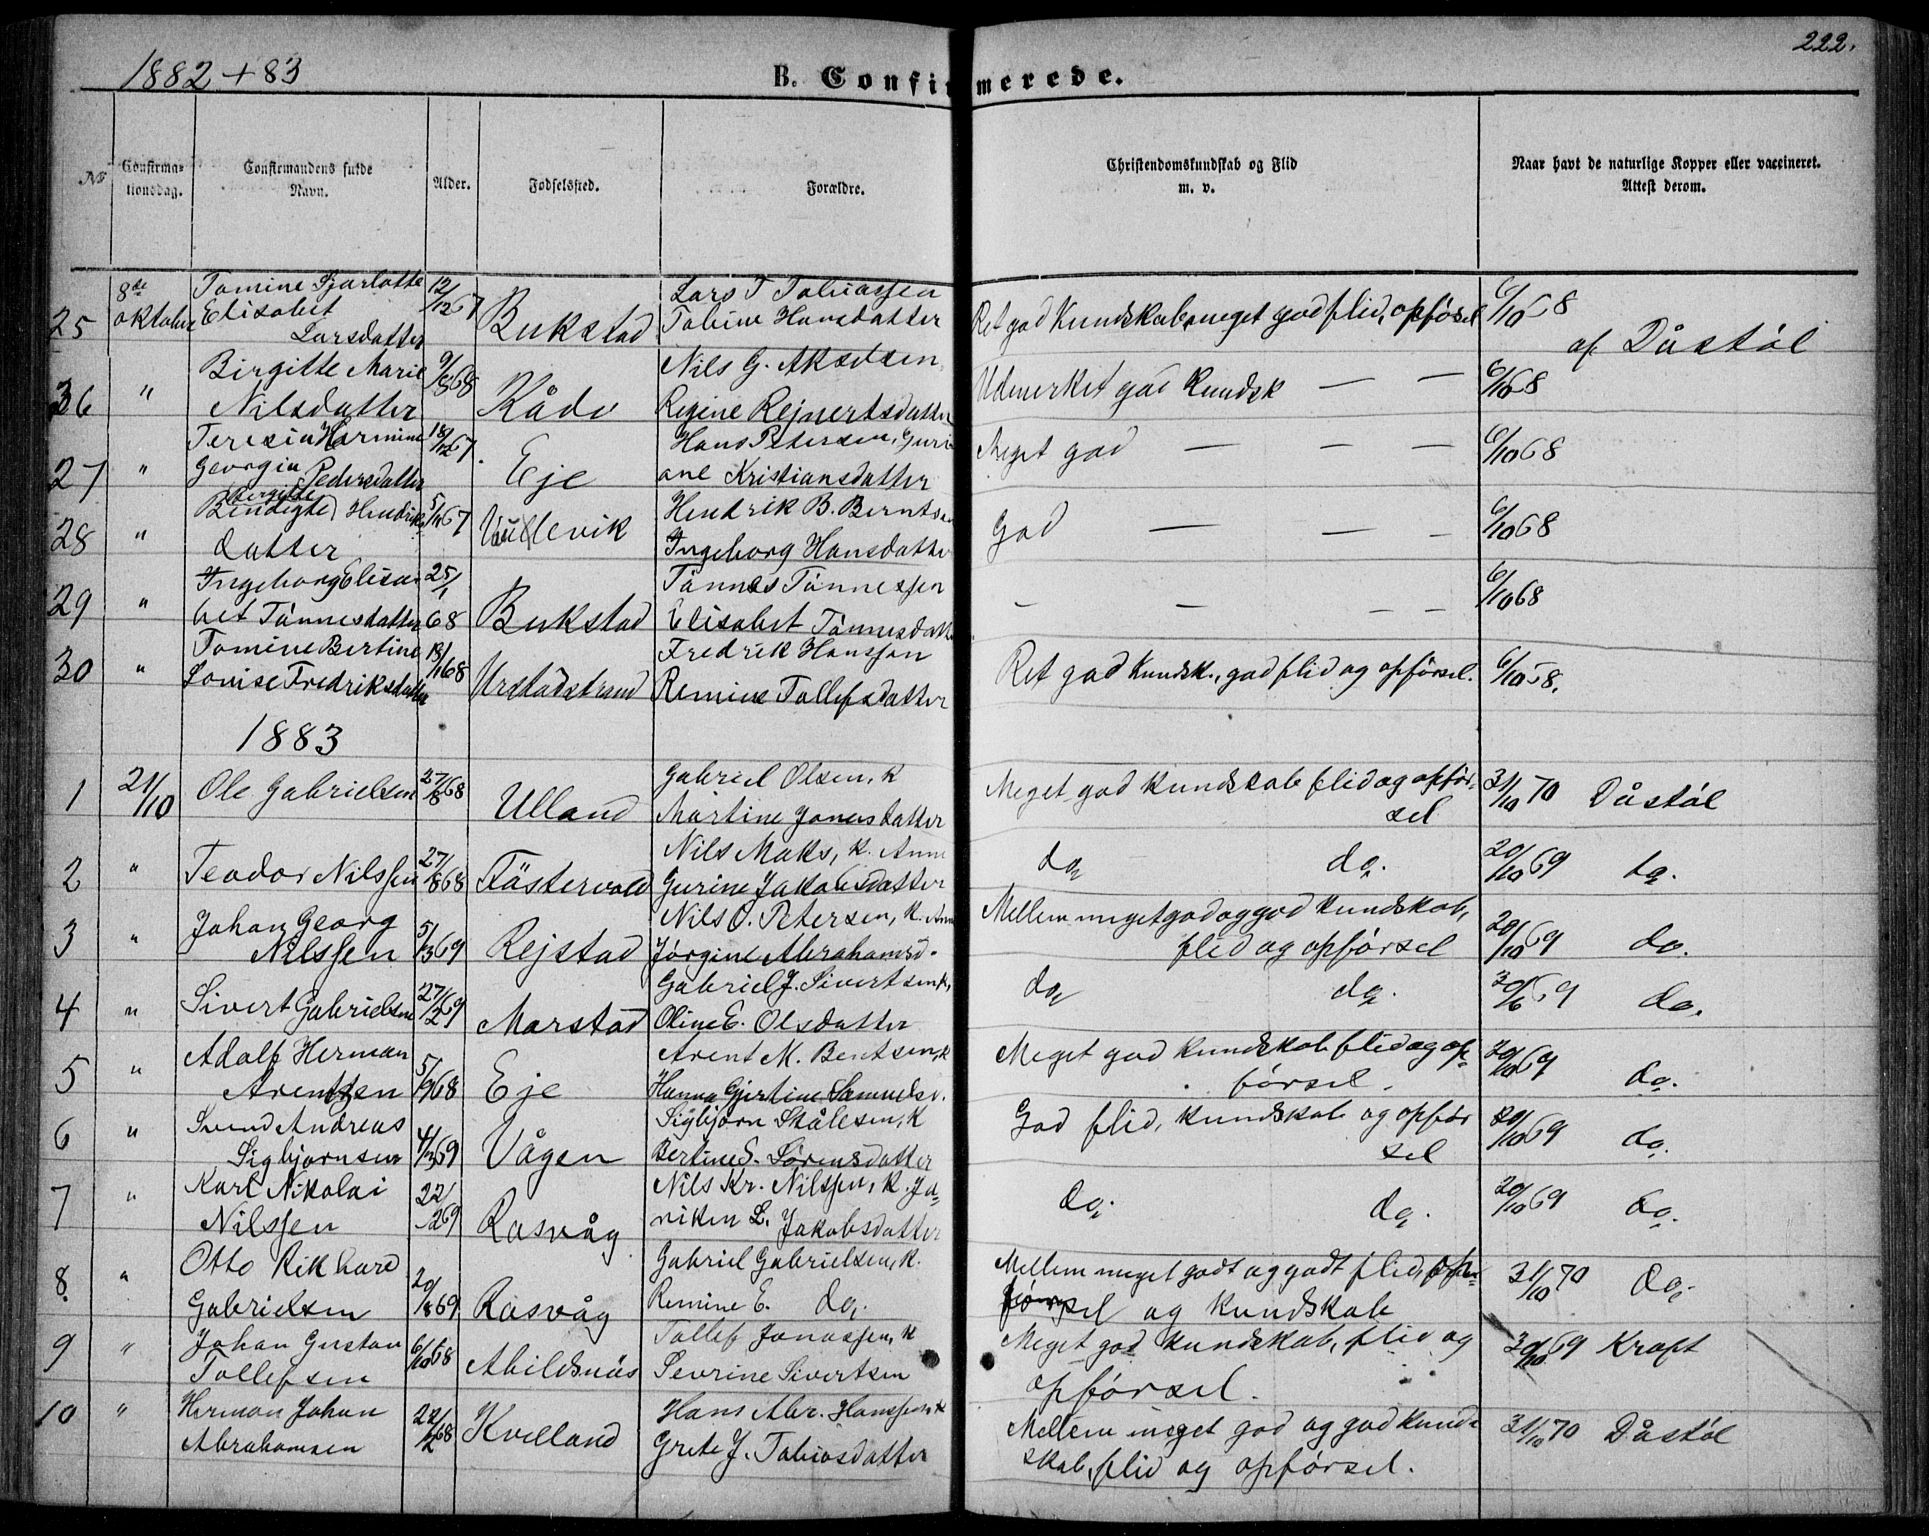 222.
1882 + 83
B. Confirmerede.
No
Confirmationsdag.
Confirmandens fulde Navn.
Alder.
Fødselssted.
Forældre.
Christendomskundskab og Flid m. v.
Naar havt de naturlige Kopper eller vaccineret. Attest derom.
25 8de oktober Tomine Sjarlotte Elisabet Larsdatter 12/12 67 Bukstad Lars T Tobiassen Tobine Hansdatter Ret god Kundskab, meget god flid, opførsel 6/10 68 af Dåstøl
36 " Birgitte Marie Nilsdatter 9/8 68 Råde Nils G. Akselsen, Regine Rejnertsdatter Udmerket god Kundsk — — 6/10 68
27 " Teresia Harmine Georgia Pedersdatter 18/12 67. Eje Hans Petersen, Guriane Kristiansdatter Meget god — — — 6/10 68
28 " Bendigte Hendriksdatter 67 Hendrik B. Berntsen Ingeborg Hansdatter God — — — 6/10 68
29 " Ingeborg Elisabet Tønnesdatter 25/1 68 Bukstad Tønnes Tønnessen Elisabet Tønnesdatter – — — — 6/10 68
30 " Tomine Bertine Lovise Fredriksdatter 68 Urstadstrand Fredrik Hanssen Remine Tollefsdatter Ret god Kundsk., god flid og opførsel. 6/10 68.
1883
1 21/10 Ole Gabrielsen 27/8 68 Ulland Gabriel Olsen, k Martine Jonasdatter Meget god kundskab flid og opførsel 31/10 70 Dåstøl
2 " Teodor Nilssen 27/8 68 Fæstervold Nils Maks, k. Anne Gurine Jakobsdatter do, do. 20/10 69 do.
3 " Johan Georg Nilssen 5/3 69 Rejstad Nils O. Petersen, k. Ann Jørgine Abrahamsd. Mellem meget god og god kundskab, flid og opførsel 20/10 69 do.
4 " Sivert Gabrielsen 27/2 69 Marstad Gabriel J. Sivertsen k, Oline E. Olsdatter do, do. 69 do.
5 " Adolf Herman Arentsen 5/9 68 Eje Arent M. Bentsen, k Hanna Gjertine Samuelsd. Meget god kundskab flid og opførsel. 20/10 69 do.
6 " Svend Andreas Sigbjørnsen 4/3 69 Vågen Sigbjørn Skålesen, k Bertine S. Sørensdatter God flid, kundskab og opførsel 20/10 69 do.
7 " Karl Nikolai Nilssen 22/2 69 Rasvåg Nils Kr. Nilssen, k. Javiken L. Jakobsdatter do. do. 20/10 69 do.
8. " Otto Rikhard Gabrielsen 69 Rasvåg Gabriel Gabrielsen, k. Remine E. do. Mellem meget godt og godt flid, opførsel og kundskab 31/10 70 do.
9 " Johan Gustav Tollefsen 6/10 68 Abildsnæs Tollef Jonassen, k Sevrine Sivertsen Meget god kundskab, flid og opførsel. 30/10 69 Kraft
10 " Herman Johan Abrahamsen 68 Kvelland Hans Abr. Hanssen k Grete J. Tobiasdatter Mellem meget god og god kundskab, flid og opførsel. 31/10 70 Dåstøl